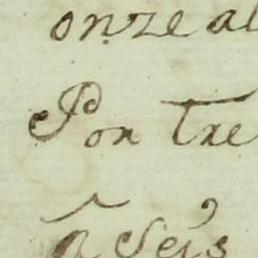 onze al
Por tre
a seis